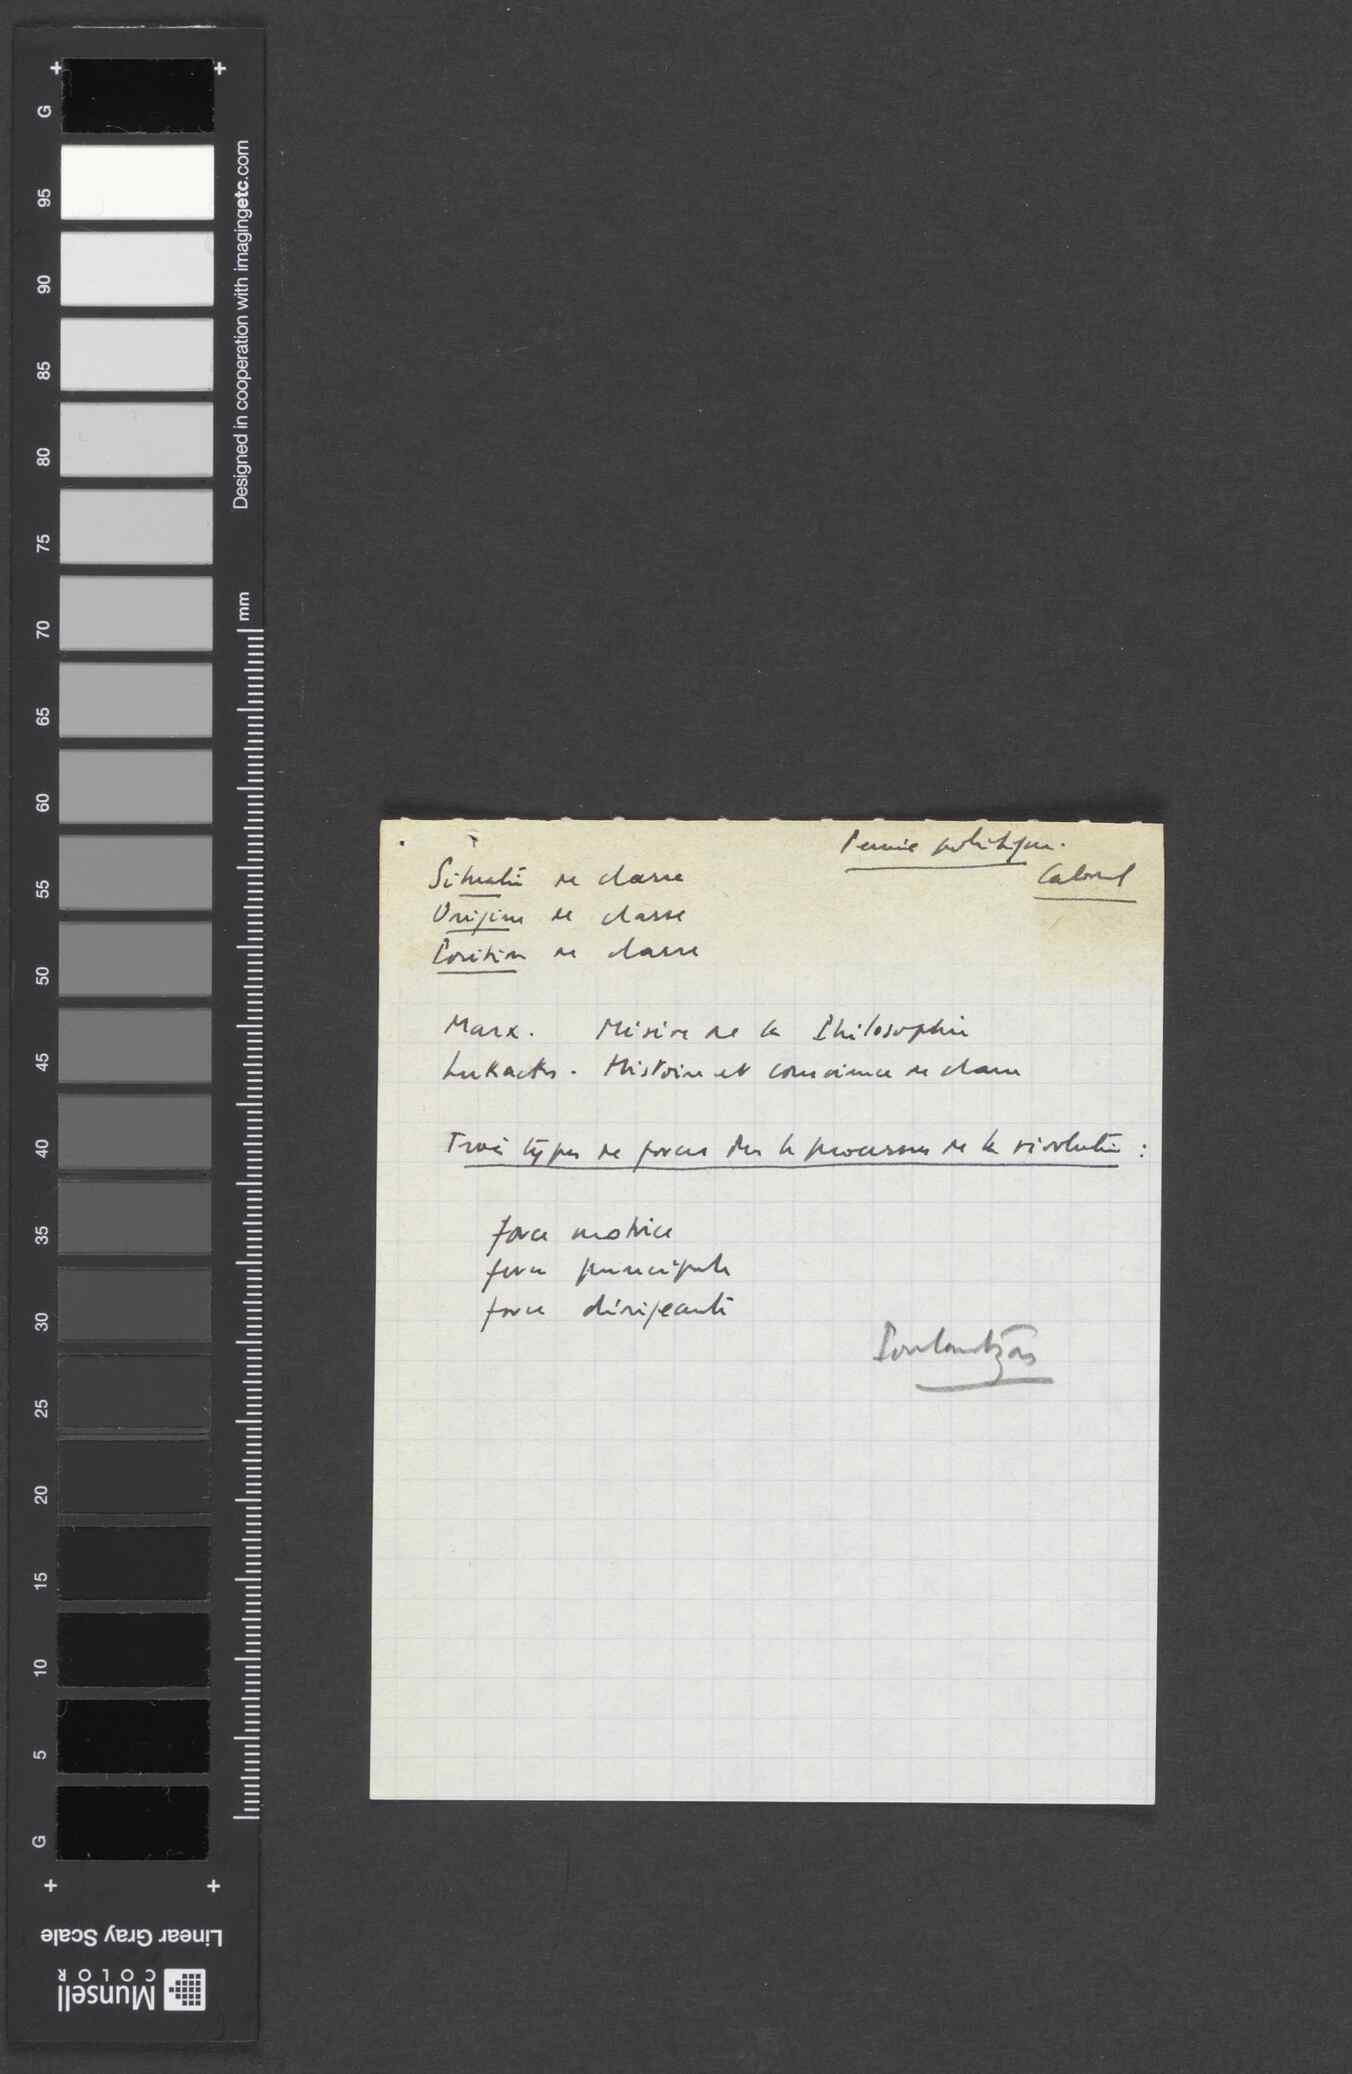 Pensée politique.
Cabral
Situation de classe
Origine de classe
Position de classe
Marx. Misère de la Philosophie
Lukacks. Histoire et conscience de classe
Trois types de forces ds le processus de la révolution :
force motrice
force principale
force dirigeante
Poulantzas
G
95
90
85
80
75
70
65
60
55
50
45
40
35
30
25
20
15
10
5
G
Designed in cooperation with imagingetc.com
mm
Linear Gray Scale
Munsell
COLOR